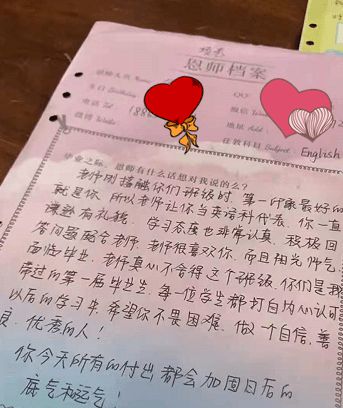 恩师档案
恩师大名 Name
生日 Birthday
QQ:
电话 Tel
微信
微博 Weibo
地址 Add
任教科目 Subject: English
毕业之际，恩师有什么话想对我说的么？
老师刚接触你们班级时，第一印象最好的
就是你，所以老师让你当英语科代表，你一直
谦逊有礼貌，学习态度也非常认真，积极回
答问题配合老师，老师很喜欢你，而且阳光帅气。
面临毕业，老师真心不舍得这个班级，你们是我
带过的第一届毕业生，每一位学生都打自内心认可
以后的学习中，希望你不畏困难，做一个自信、善
良、优秀的人！
你今天所有的付出都会加固日后的
底气和运气！